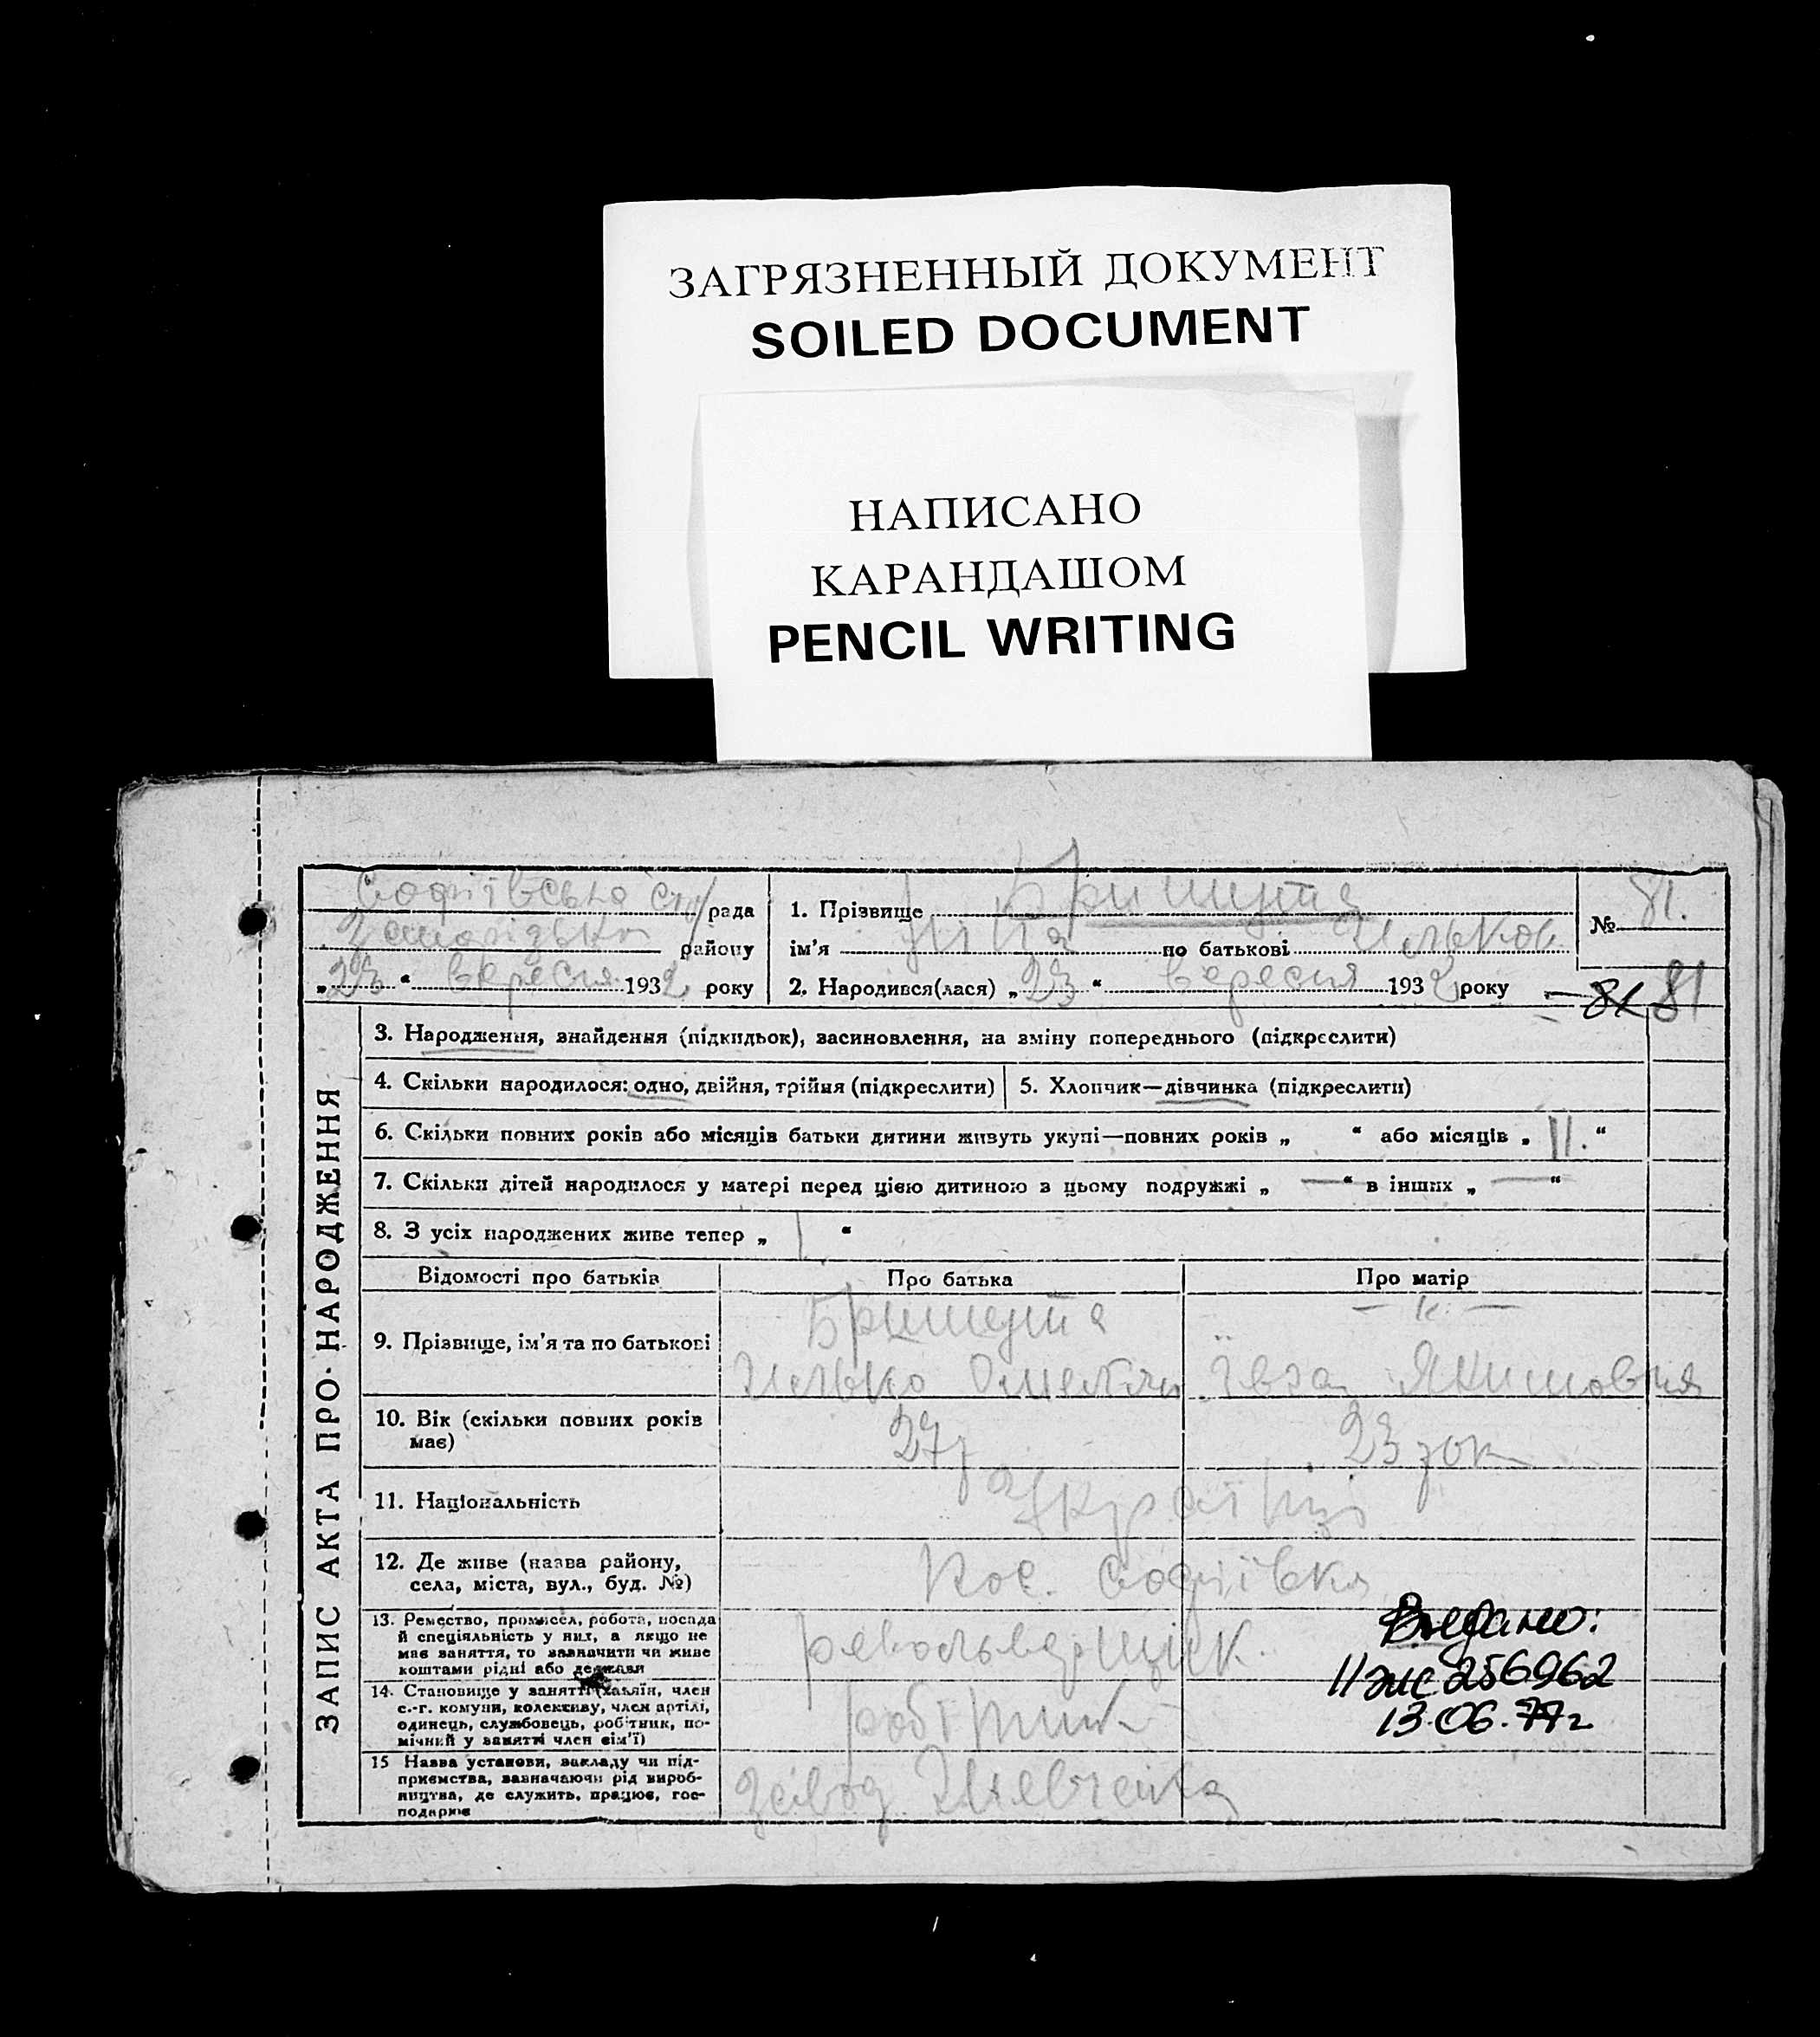 ЗАГРЯЗНЕННЫЙ ДОКУМЕНТ
SOILED DOCUMENT
НАПИСАНО
КАРАНДАШОМ
PENCIL WRITING
Софіївська рада
району
„23“ вересня 1932 року
1. Прізвище
ім'я по батькові
2. Народився(лася) „23“ вересня 1932 року
№ 81.
81 81
ЗАПИС АКТА ПРО НАРОДЖЕННЯ
3. Народження, знайдення (підкидьок), засиновлення, на зміну попереднього (підкреслити)
4. Скільки народилося: одно, двійня, трійня (підкреслити)
5. Хлопчик—дівчинка (підкреслити)
6. Скільки повних років або місяців батьки дитини живуть укупі—повних років „ “ або місяців „ 11. “
7. Скільки дітей народилося у матері перед цією дитиною в цьому подружжі „ — “ в інших „ — “
8. З усіх народжених живе тепер „ 1 “
Відомості про батьків
Про батька
Про матір
9. Прізвище, ім'я та по батькові
Якимовня
10. Вік (скільки повних років
має)
27р
23 рок
11. Національність
Українці
12. Де живе (назва району,
села, міста, вул., буд. №)
Пос. Софіївка
13. Ремество, промисел, робота, посада
й спеціяльність у них, а якщо не
має заняття, то зазначити чи живе
коштами рідні або держави
револьверщик.
14. Становище у занятті (хазяїн, член
с.-г. комуни, колективу, член артілі,
одинець, службовець, робітник, по-
мічний у занятті член сім'ї)
робітник
15 Назва установи, закладу чи під-
приємства, зазначаючи рід вироб-
ництва, де служить, працює, гос-
подарює
завод Шевченка
Выдано:
II ЖС 256962
13.06.77г